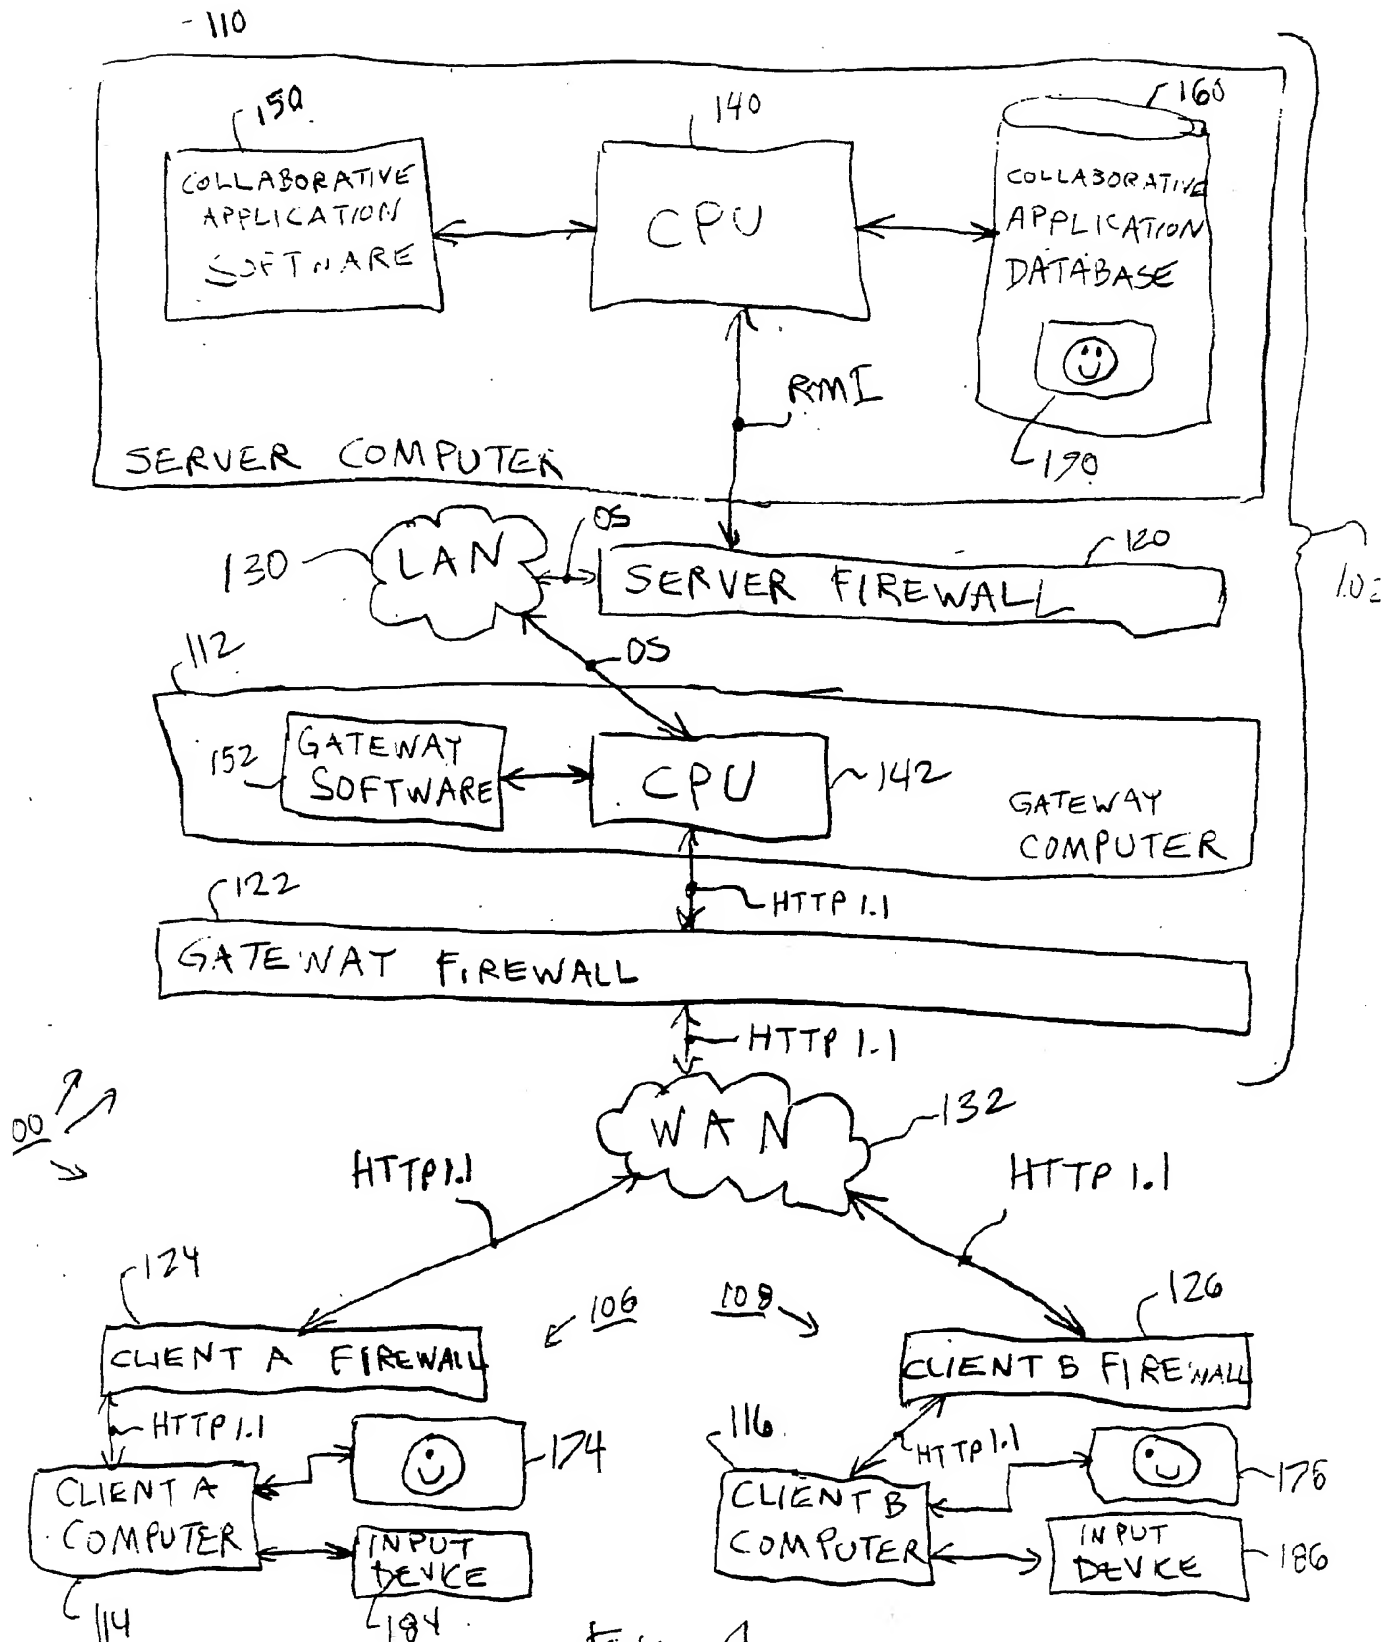 110
150
140
160
COLLABORATIVE
APPLICATION
SOFTWARE
CPU
COLLABORATIVE
APPLICATION
DATABASE
RMI
190
SERVER COMPUTER
130
LAN
OS
120
SERVER FIREWALL
112
OS
152
GATEWAY
SOFTWARE
CPU
142
GATEWAY
COMPUTER
122
HTTP 1.1
GATEWAY FIREWALL
HTTP 1.1
00
WAN
132
HTTP 1.1
HTTP 1.1
124
106
108
126
CLIENT A FIREWALL
CLIENT B FIREWALL
HTTP 1.1
174
116
HTTP 1.1
CLIENT A
COMPUTER
CLIENT B
COMPUTER
INPUT
DEVICE
INPUT
DEVICE
186
114
184